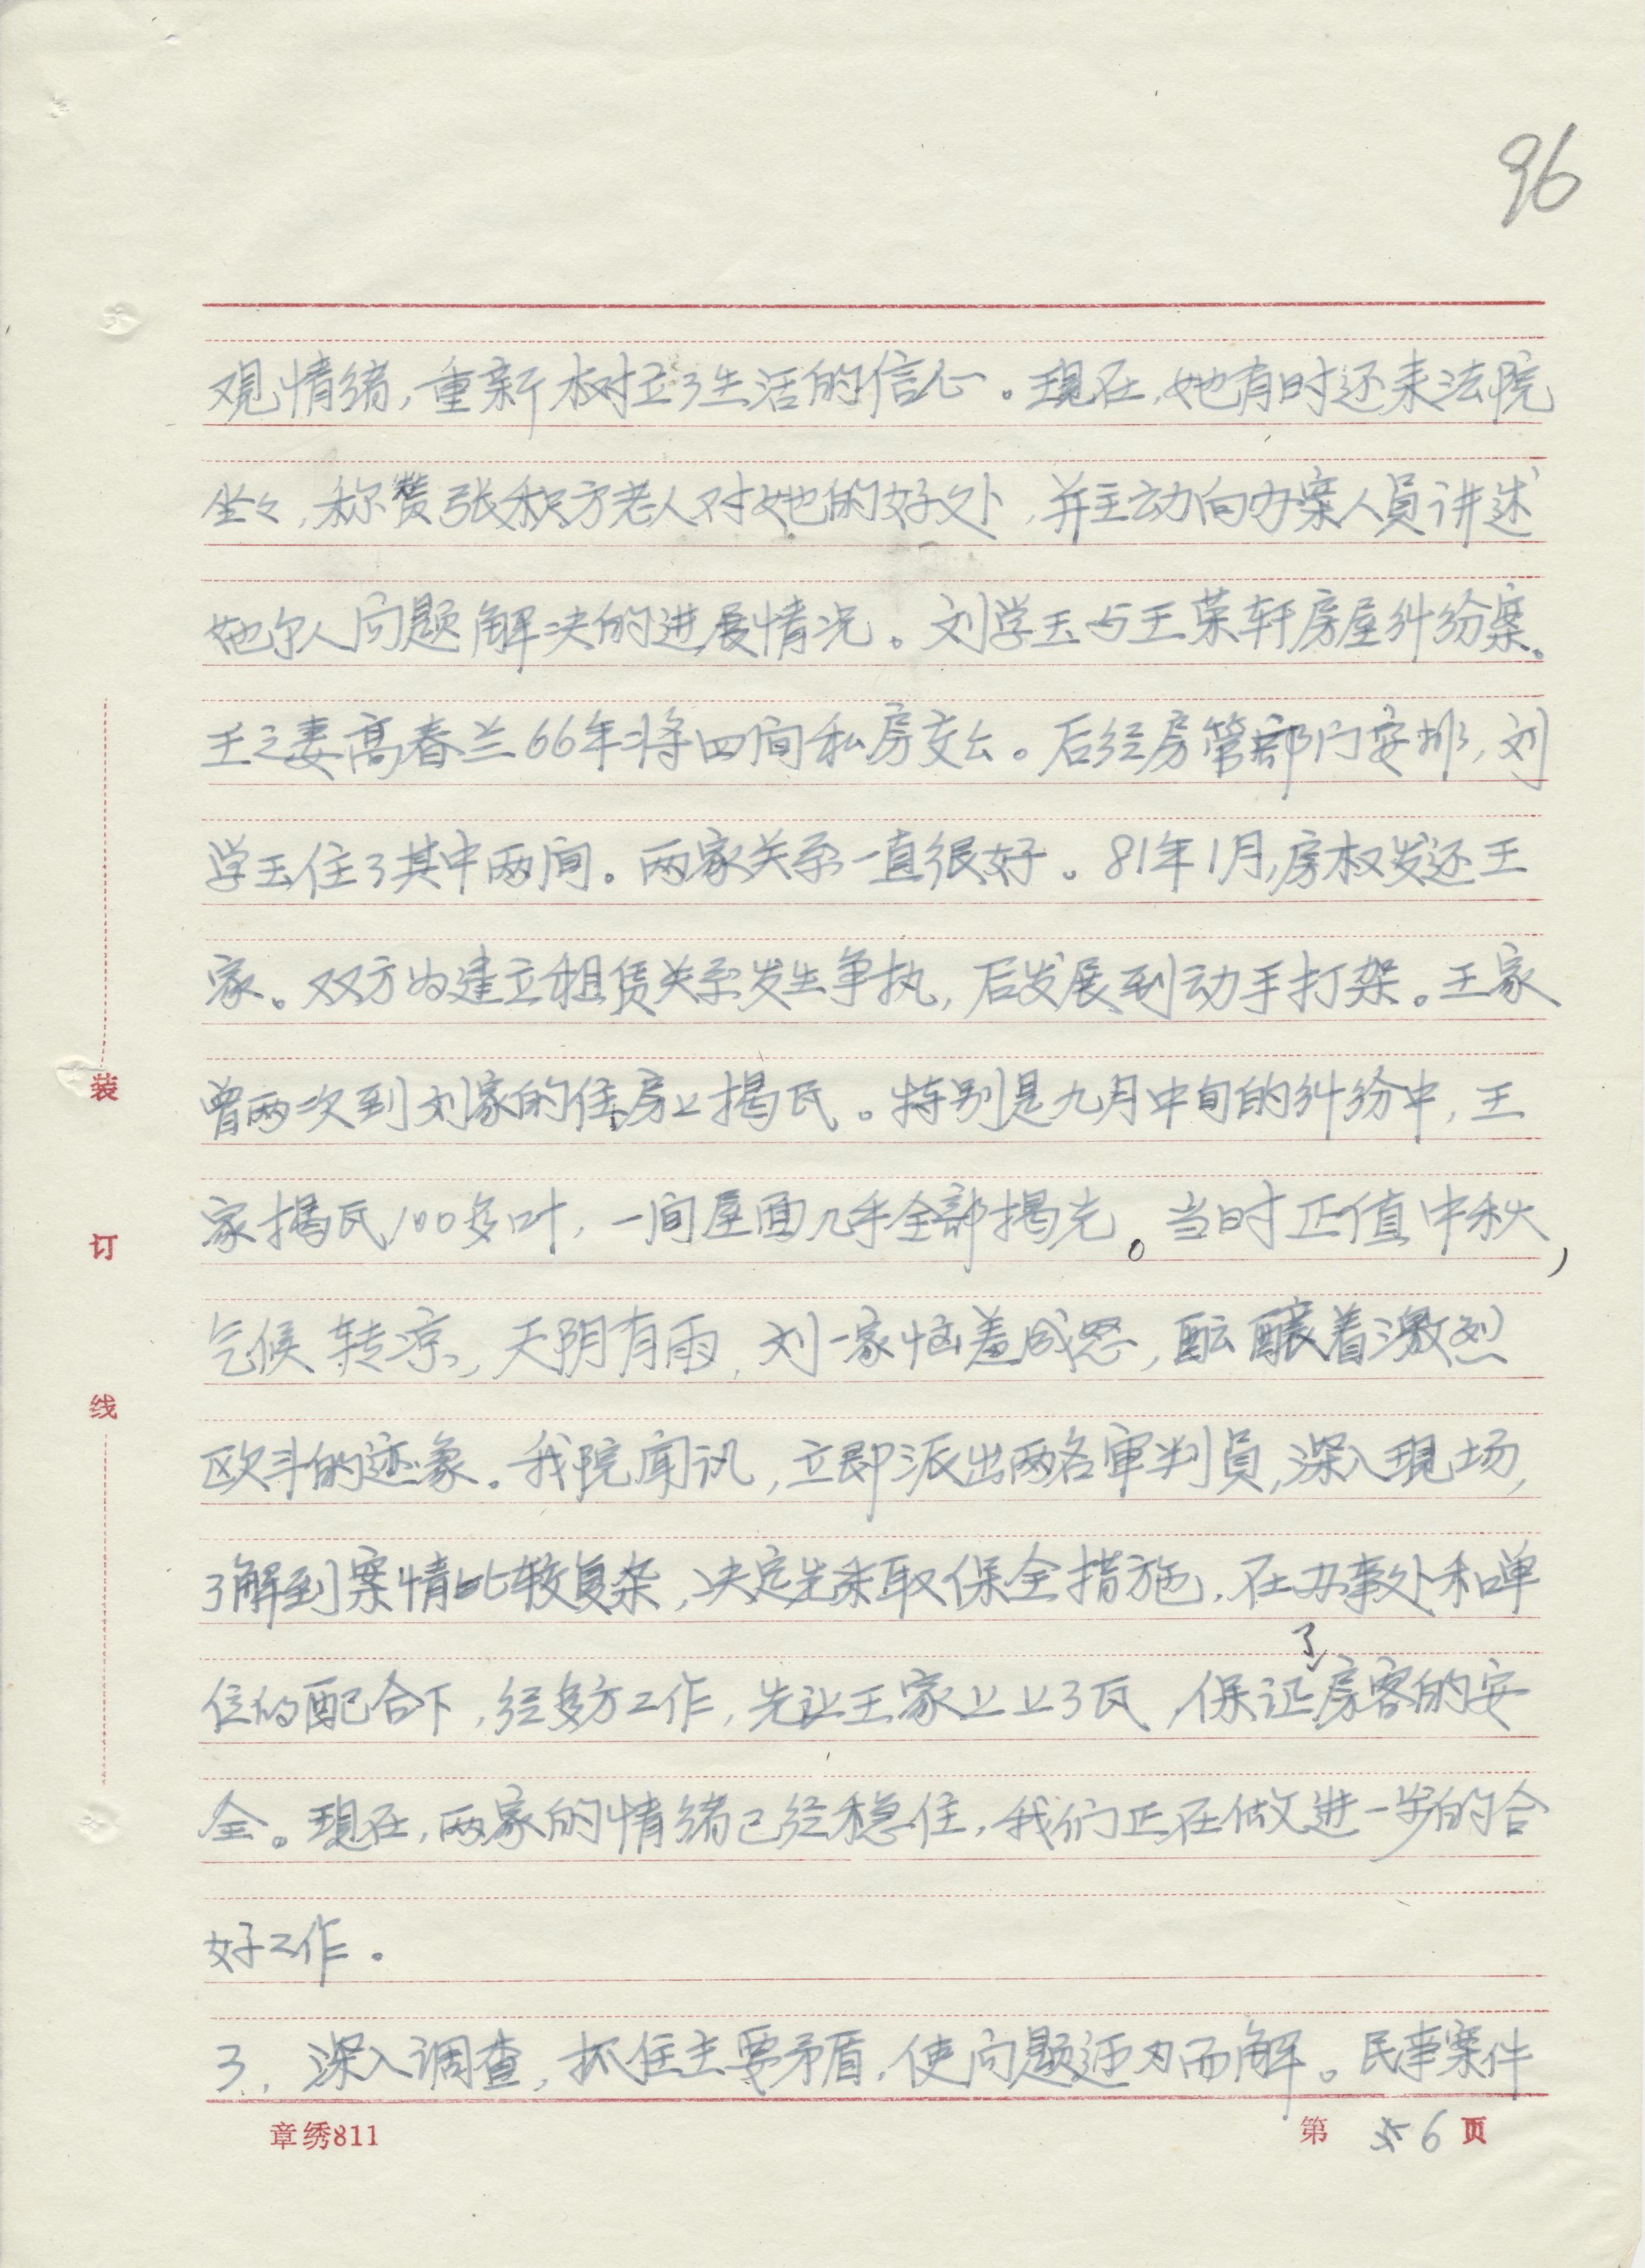 96
观情绪，重新树立了生活的信心。现在，她有时还来法院
坐々，称赞张积芳老人对她的好处，并主动向办案人員讲述
她个人问题解决的进展情况。刘学玉与王荣轩房屋纠纷案。
王之妻高春兰66年将四间私房交公。后经房管部门安排，刘
学玉住了其中两间。两家关系一直很好。81年1月，房权发还王
家。双方为建立租赁关系发生争执，后发展到动手打架。王家
曾两次到刘家的住房上揭瓦。特别是九月中旬的纠纷中，王
家揭瓦100多叶，一间屋面几乎全部揭光。当时正值中秋，
气候转凉，天阴有雨，刘家恼羞成怒，酝酿着激烈
欧斗的迹象。我院闻讯，立即派出两名审判員，深入現场，
了解到案情比较复杂，决定先采取保全措施，在办事处和单
位的配合下，经多方工作，先让王家上上了瓦，保证了房客的安
全。現在，两家的情绪已经稳住，我们正在做进一步的合
好工作。
3、深入调查，抓住主要矛盾，使问题迎刃而解。民事案件
装
订
线
章绣811
第 6 页